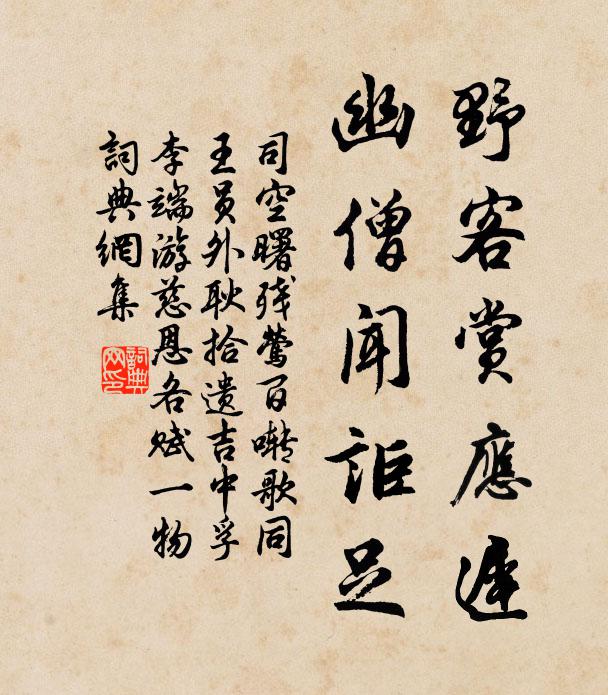 野客賞應遲
幽僧聞詎足
司空曙残鶯百囀歌同
王员外耿拾遗吉中孚
李端游慈恩各赋一物
詞典網集
詞典
网印